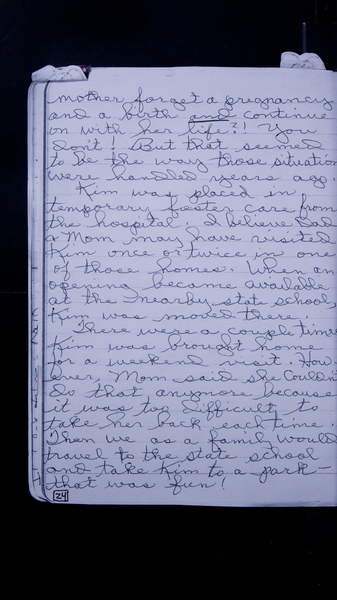 mother forget a pregnancy
and a birth and continue
on with her life?! You
don't! But that seemed
to be the way those situation
were handled years ago.
Kim was placed in
temporary foster care from
the hospital. I believe Dad
& Mom may have visited
Kim once or twice in one
of those homes. When an
opening became available
at the nearby state school,
Kim was moved there.
There were a couple times
Kim was brought home
for a weekend visit. How-
ever, Mom said she couldn't
do that anymore because
it was too difficult to
take her back each time.
Then we as a family would
travel to the state school
and take Kim to a park—
that was fun!
24